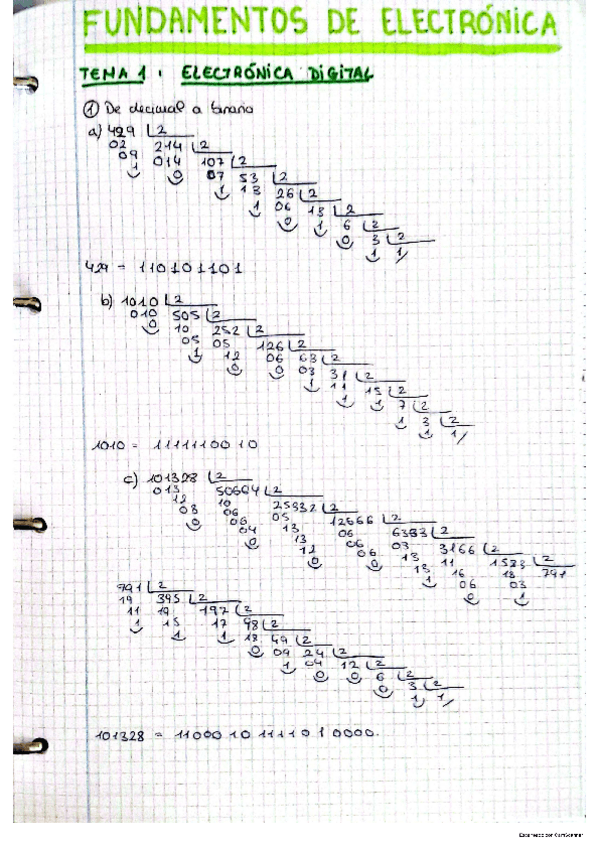 FUNDAMENTOS DE ELECTRÓNICA
TEMA 1: ELECTRÓNICA DIGITAL
① De decimal a binario
a) 429 | 2
02 214 | 2
09 014 107 | 2
1 0 07 53 | 2
1 13 26 | 2
1 06 13 | 2
0 1 6 | 2
0 3 | 2
1 1
429 = 110101101
b) 1010 | 2
010 505 | 2
0 10 252 | 2
05 05 126 | 2
1 12 06 63 | 2
0 0 03 31 | 2
1 11 15 | 2
1 1 7 | 2
1 3 | 2
1 1
1010 = 1111110010
c) 101328 | 2
013 50664 | 2
12 10 25332 | 2
08 06 05 12666 | 2
0 06 13 06 6333 | 2
04 13 06 03 3166 | 2
0 12 06 13 11 1583 | 2
0 0 13 16 18 791
1 06 03
0 1
791 | 2
19 395 | 2
11 19 197 | 2
1 15 17 98 | 2
1 1 18 49 | 2
0 09 24 | 2
1 04 12 | 2
0 0 6 | 2
0 3 | 2
1 1
101328 = 11000101111010000.
Escaneado con CamScanner